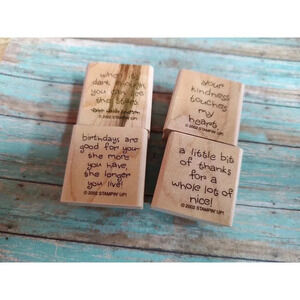 when it's
dark enough
you can see
the stars
© 2002 STAMPIN' UP!
your
kindness
touches
my
heart
© 2002 STAMPIN' UP!
birthdays are
good for you-
the more
you have,
the longer
you live!
© 2002 STAMPIN' UP!
a little bit
of thanks
for a
whole lot of
nice!
© 2002 STAMPIN' UP!